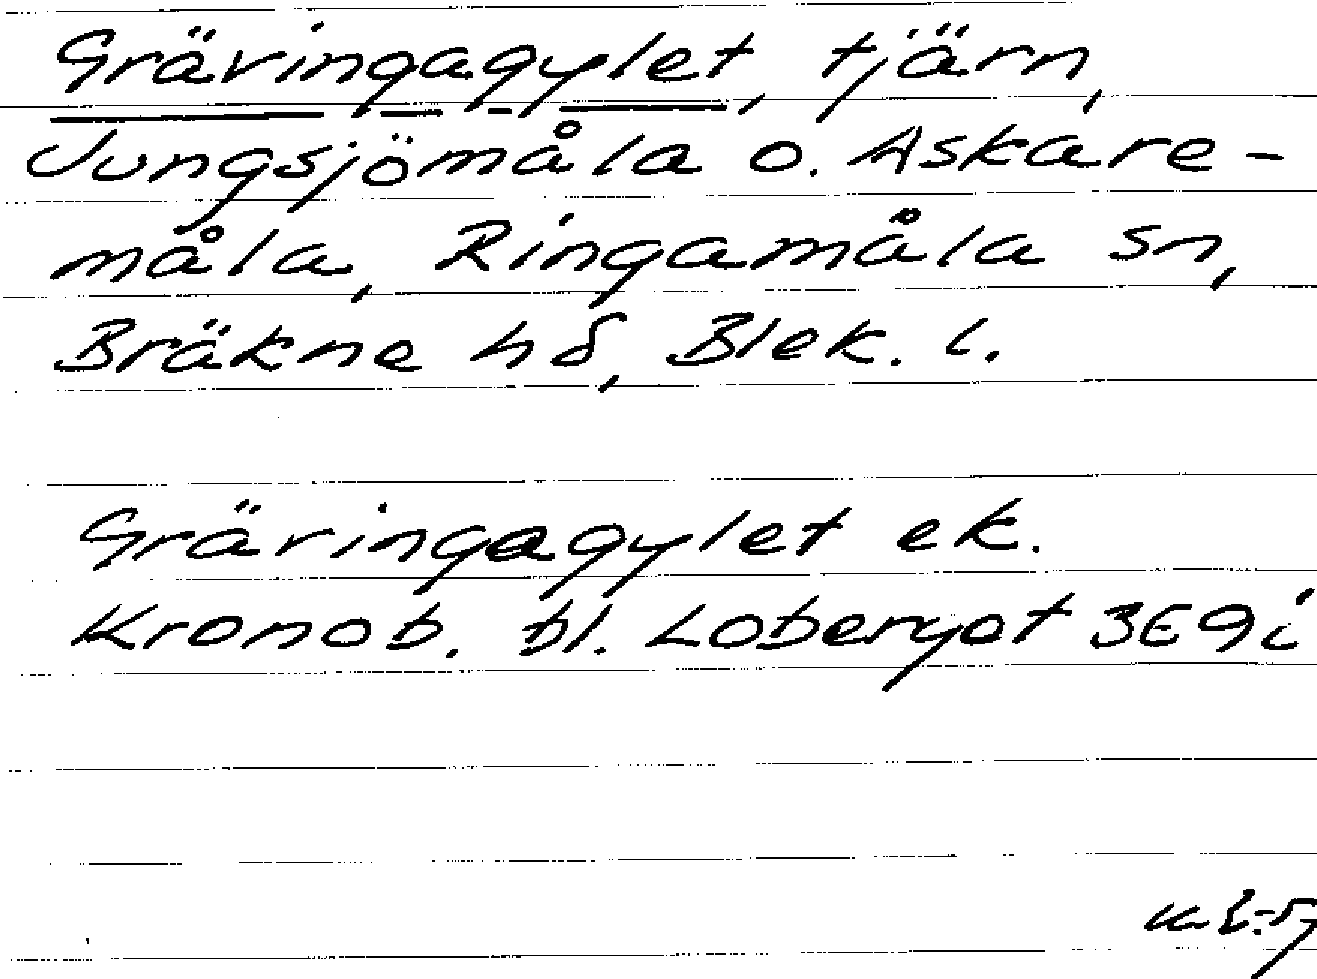 Grävingagylet, tjärn,
Jungsjömåla o. Askare-
måla, Ringamåla sn,
Bräkne hd, Blek. l.
Grävingagylet ek.
Kronob. bl. Lobergot 3E9i